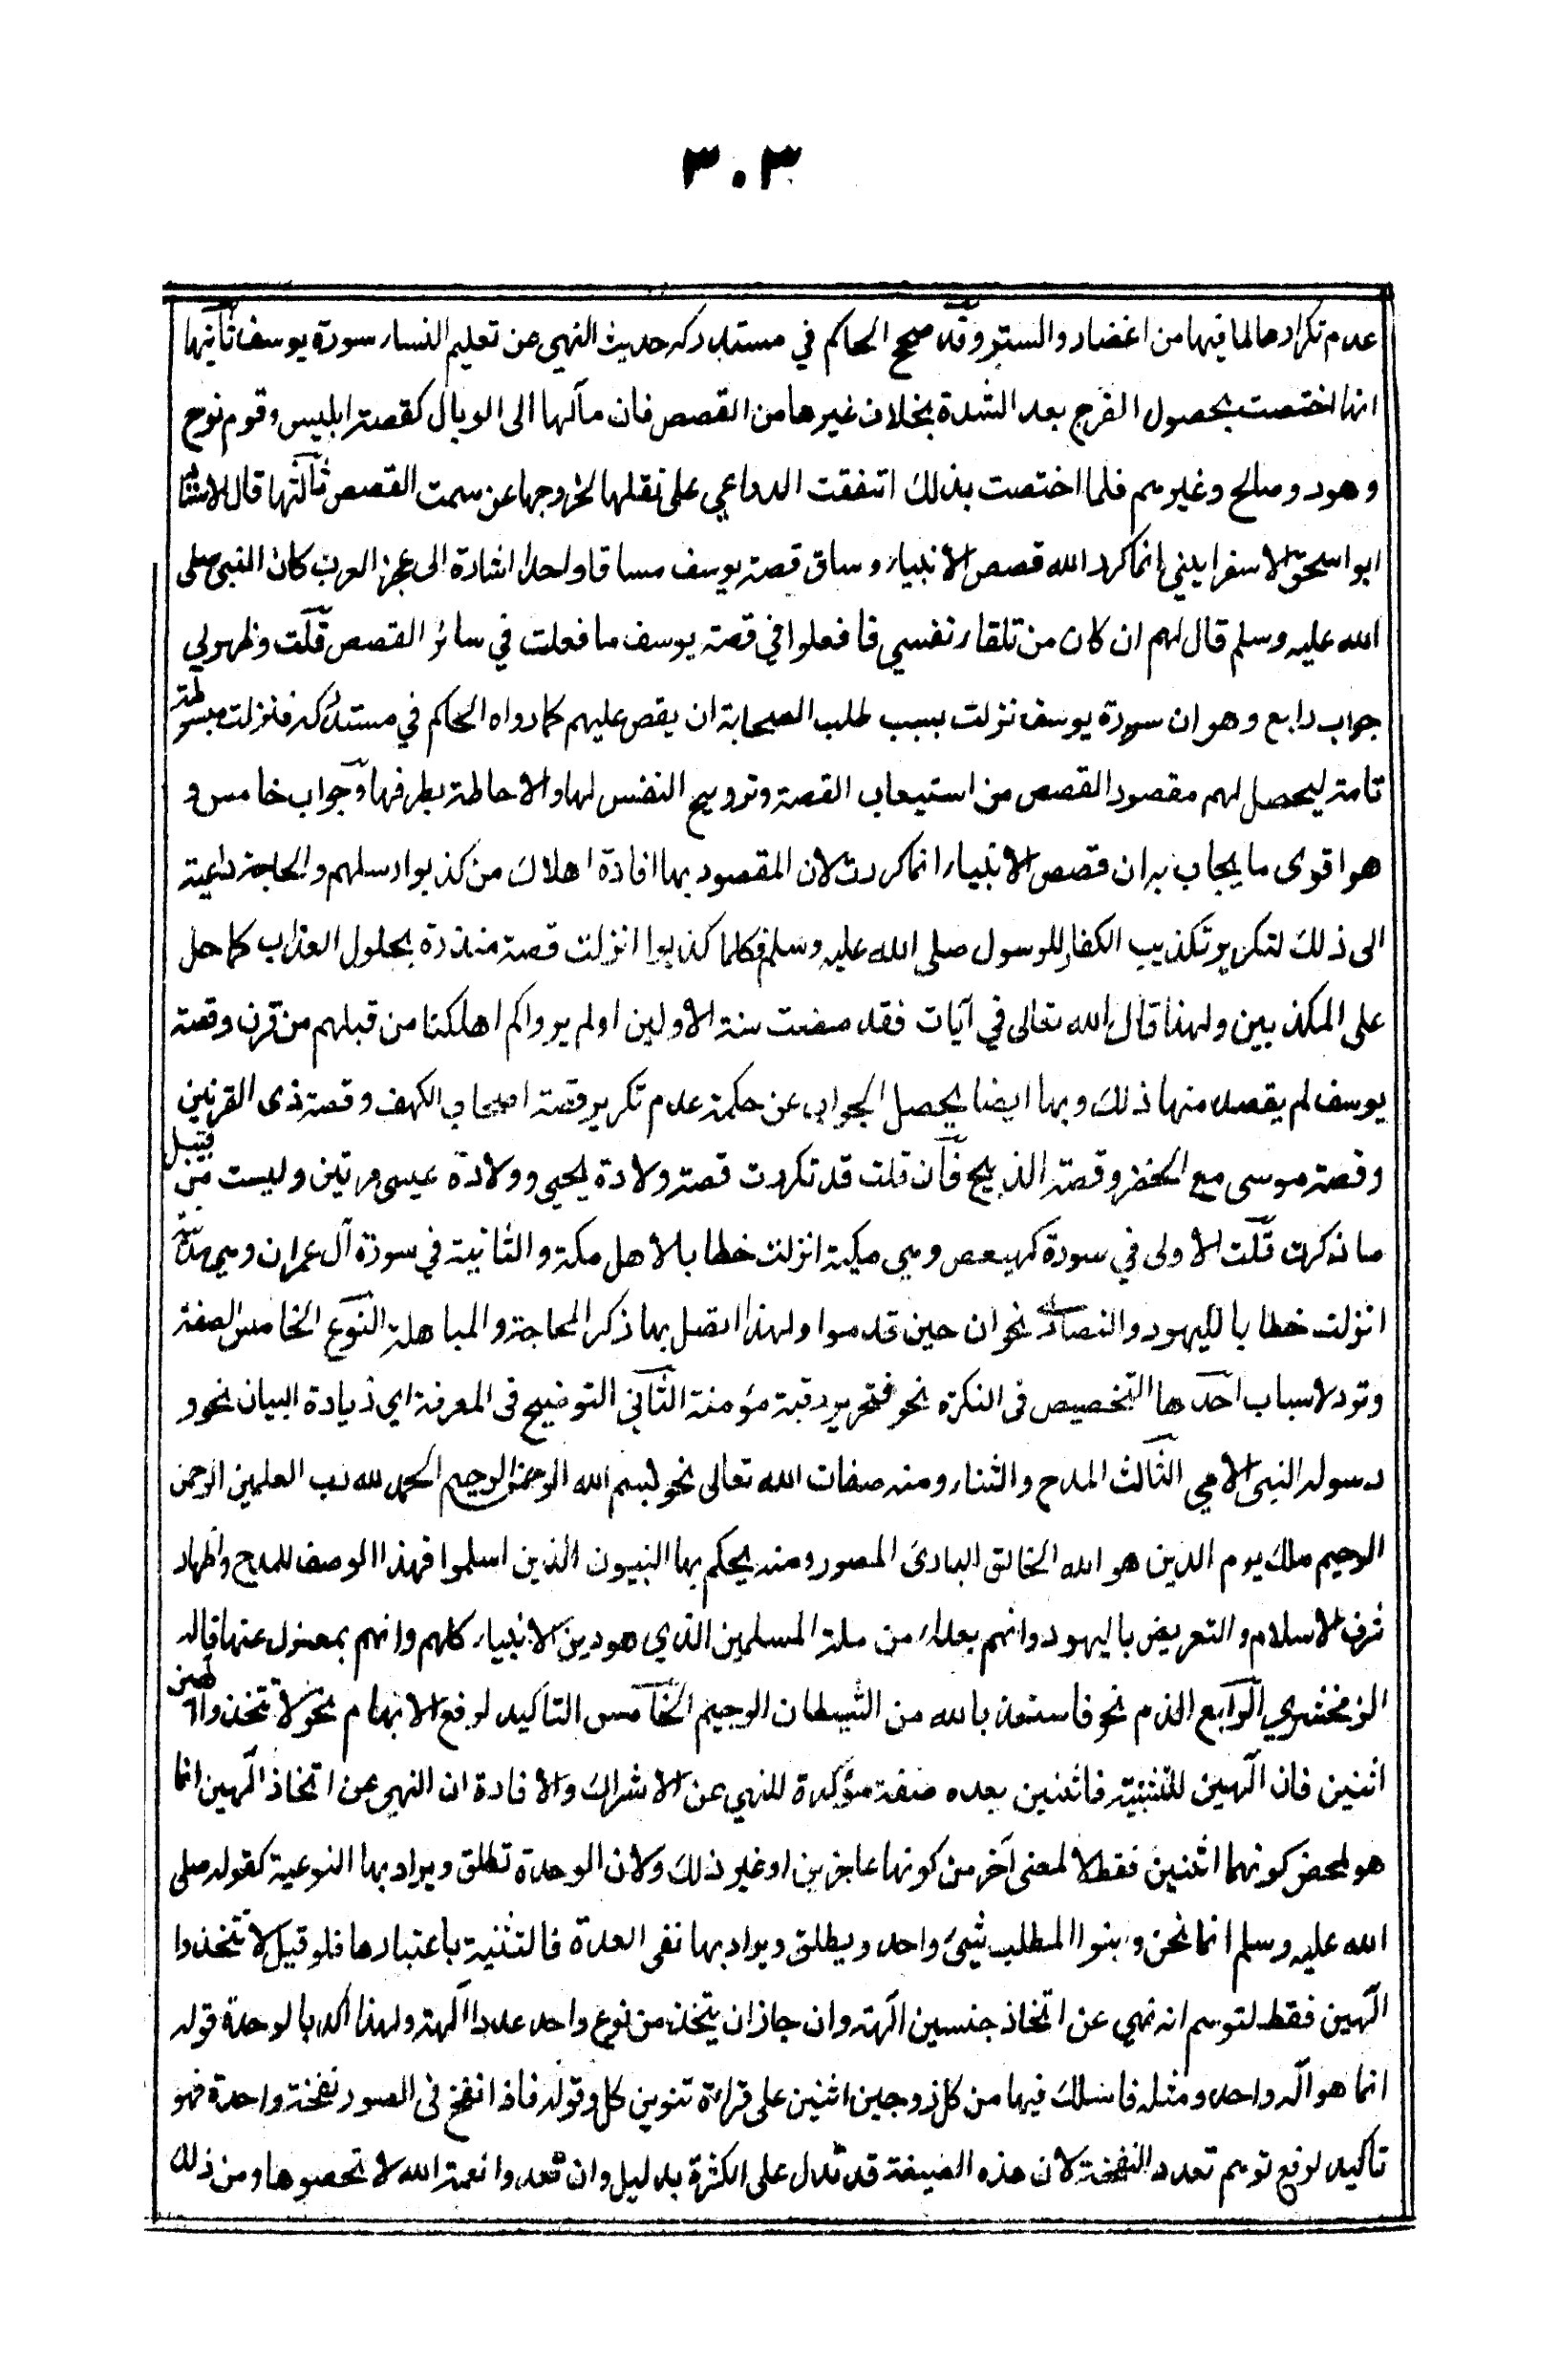 ٣٠٣
عدم تكرارها لما فيها من اغضاء والستر وقد صحح الحاكم في مستدركه حديث النهي عن تعليم النساء سورة يوسف ثانيها
انها اختصت بحصول الفرج بعد الشدة بخلاف غيرها من القصص فان مآلها الى الوبال كقصة ابليس وقوم نوح
وهود وصالح وغيرهم فلما اختصت بذلك اتفقت الدواعي على نقلها لخروجها عن سمت القصص ثالثها قال الاستاذ
ابو اسحق الاسفرايني انما كرر الله قصص الانبياء وساق قصة يوسف مساقا واحدا اشارة الى عجز العرب كان النبي صلى
الله عليه وسلم قال لهم ان كان من تلقاء نفسي فافعلوا في قصة يوسف ما فعلت في سائر القصص قلت وظهر لي
جواب رابع وهو ان سورة يوسف نزلت بسبب طلب الصحابة ان يقص عليهم كما رواه الحاكم في مستدركه فنزلت مبسوطة
تامة ليحصل لهم مقصود القصص من استيعاب القصة وترويح النفس لها والاحاطة بطرفها وجواب خامس و
هو اقوى ما يجاب به ان قصص الانبياء انما كررت لان المقصود بها افادة اهلاك من كذبوا رسلهم والحاجة داعية
الى ذلك لتكرير تكذيب الكفار للرسول صلى الله عليه وسلم فكلما كذبوا انزلت قصة منذرة بحلول العذاب كما حل
على المكذبين ولهذا قال الله تعالى في آيات فقد مضت سنة الاولين اولم يروا كم اهلكنا من قبلهم من قرن وقصة
يوسف لم يقصد منها ذلك وبها ايضا يحصل الجواب عن حكمة عدم تكرير قصة اصحاب الكهف وقصة ذى القرنين
وقصة موسى مع الخضر وقصة الذبيح فان قلت قد تكررت قصة ولادة يحيى وولادة عيسى مرتين وليست من قبيل
ما ذكرت قلت الاولى في سورة كهيعص وهي مكية انزلت خطابا لاهل مكة والثانية في سورة آل عمران وهي مدنية
انزلت خطابا لليهود والنصارى نجران حين قدموا ولهذا اتصل بها ذكر المحاجة والمباهلة النوع الخامس الصفة
وترد لاسباب احدها التخصيص فى النكرة نحو فتحرير رقبة مؤمنة الثاني التوضيح فى المعرفة اي زيادة البيان نحو و
رسوله النبي الامي الثالث المدح والثناء ومنه صفات الله تعالى نحو بسم الله الرحمن الرحيم الحمد لله رب العلمين الرحمن
الرحيم ملك يوم الدين هو الله الخالق البارئ المصور ومنه يحكم بها النبيون الذين اسلموا فهذا الوصف للمدح واظهار
شرف الاسلام والتعريض باليهود وانهم بعداء من ملة المسلمين الذي هو دين الانبياء كلهم وانهم بمعزل عنها قاله
الزمخشري الرابع الذم نحو فاستعذ بالله من الشيطان الرجيم الخامس التأكيد لرفع الابهام نحو لا تتخذوا الهين
اثنين فان آلهين للتثنية فاثنين بعده صفة مؤكدة للنهي عن الاشراك والافادة ان النهي عن اتخاذ آلهين انما
هو لمحض كونهما اثنين فقط لا لمعنى آخر من كونهما عاجزين او غير ذلك ولان الوحدة تطلق ويراد بها النوعية كقوله صلى
الله عليه وسلم انما نحن وبنوا المطلب شيئ واحد ويطلق ويراد بها نفى العدة فالتثنية باعتبارها فلو قيل لا تتخذوا
آلهين فقط لتوهم انه نهي عن اتخاذ جنسين آلهة وان جاز ان يتخذ من نوع واحد عددا آلهة ولهذا اكد بالوحدة قوله
انما هو آله واحد ومثله فاسلك فيها من كل زوجين اثنين على قراءة تنوين كل وقوله فاذا نفخ فى الصور نفخة واحدة فهو
تاكيد لرفع توهم تعدد النفخة لان هذه الصيغة قد تدل على الكثرة بدليل وان تعدوا نعمة الله لا تحصوها ومن ذلك